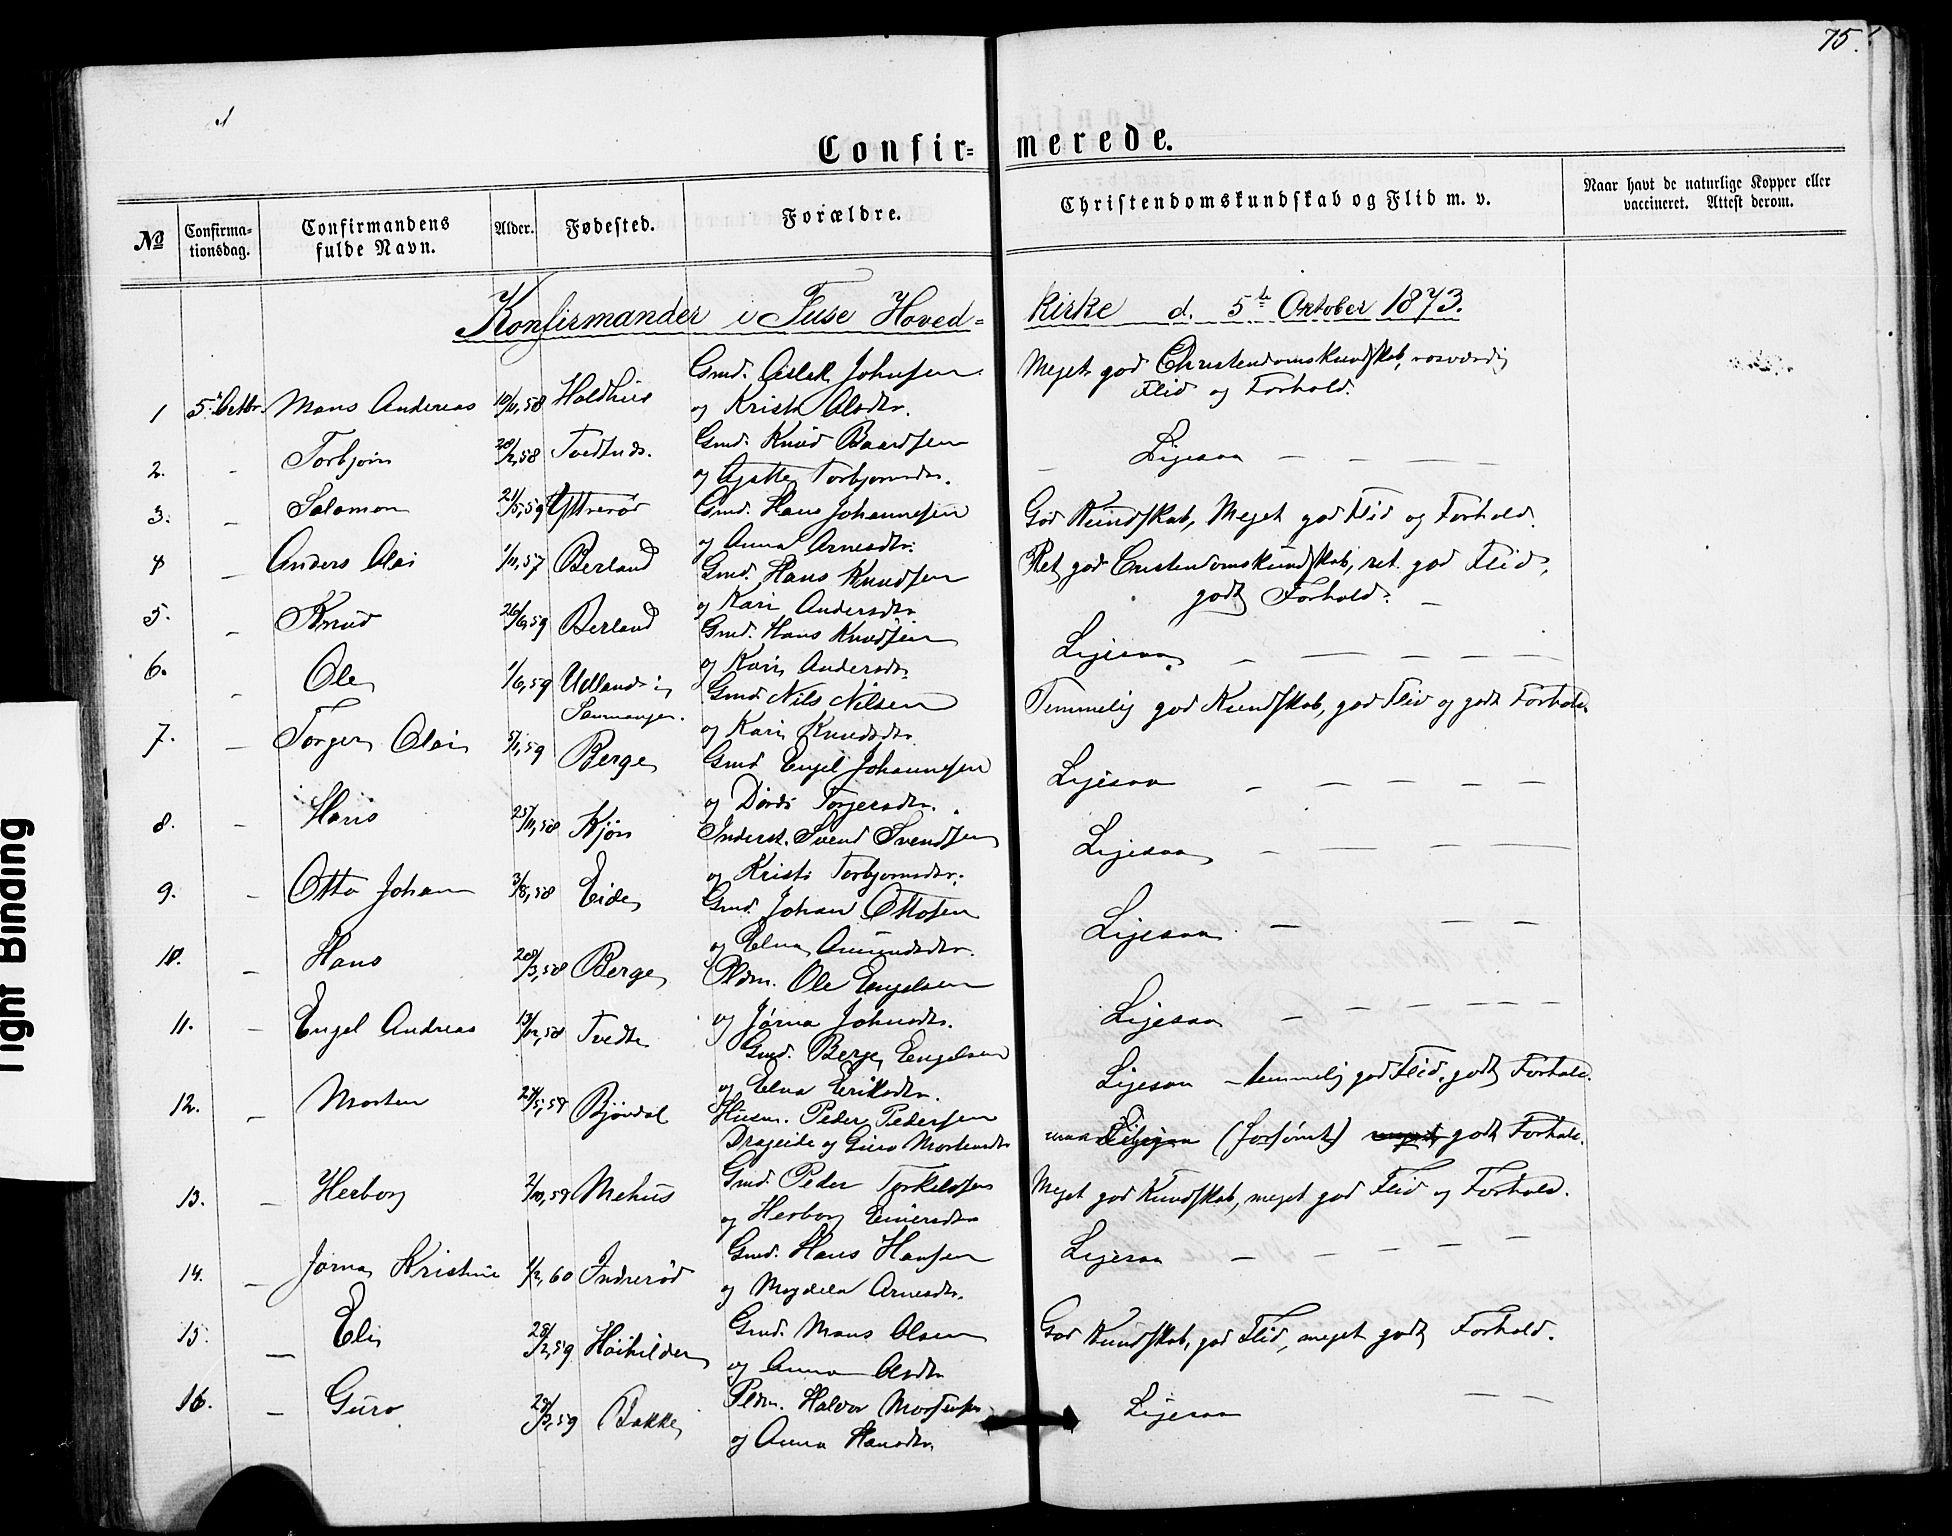 75.
Confir- merede.
No
Confirma-
tionsdag.
Confirmandens
fulde Navn.
Alder.
Fødested.
Forældre.
Christendomskundskab og Flid m. v.
Naar havt de naturlige Kopper eller
vaccineret. Attest derom.
Konfirmander i Fuse Hoved= kirke d. 5te Oktober 1873.
1 5. Octbr. Mons Andreas 10/11,58 Holdhus Gmd. Aslak Johnsen Meget god Christendomskundskab, rosværdig
og Kristi Olsdtr. Flid og Forhold.
2. - Torbjørn 28/2,58 Tvedtnds. Gmd. Knud Baardsen - Ligesaa - - -
og Agatte Torbjørnsdtr.
3. - Salomon 21/5,59 Yttrerød Gmd. Hans Johannesen God Kundskab, Meget god Flid og Forhold.
og Anna Arnesdtr.
4 - Anders Olai 1/11,57 Berland Gmd. Hans Knudsen Ret god Christendomskundskab, ret god Flid,
og Kari Andersdtr. godt Forhold. -
5. - Knud 26/6,59 Berland Gmd. Hans Knudsen Ligesaa - - - - -
og Kari Andersdtr.
6. - Ole 1/6,59 Udland i Gmd. Nils Nilsen Temmelig god Kundskab, god Flid og godt Forhold.
Samnanger. og Kari Knudsdtr.
7. - Torger Olai 5/1,59 Berge Gmd. Engel Johannesen Ligesaa - - - - -
og Dordi Torjersdtr.
8. - Hans 25/11,58 Kjøn Inderst. Svend Svendsen Ligesaa - - -
og Kristi Torbjørnsdtr.
9. - Otto Johan 3/8,58 Eide Gmd. Johan Ottosen Ligesaa. - - -
og Elna Amundsdtr.
10. - Hans 28/3,58 Berge Pldm. Ole Engelsen Ligesaa - - - - -
og Jørna Johnsdtr.
11. - Engel Andreas 13/12,58 Tvedte Gmd. Berge Engelsen Ligesaa - temmelig god Flid, godt Forhold.
og Elna Eriksdtr.
12. - Morten 24/5,58 Bjøndal Husm. Peder Pedersen Ligesaa (forsømt) meget godt Forhold.
Drageide og Guro Mortensdtr
13. - Herborg 2/10,58 Mehus Gmd. Peder Torkelsen Meget god Kundskab, meget god Flid og Forhold.
og Herborg Einersdtr
14. - Jørna Kristine 1/2,60 Indrerød Gmd. Hans Hansen Ligesaa - - - - -
og Magdela Arnesdtr.
15. - Eli 28/2,59 Høikilder Gmd. Mons Olsen God Kundskab, god Flid, meget godt Forhold.
og Anna Olsdtr
16. - Guro 28/3,59 Bakke Pldm. Halvor Mortensen Ligesaa - -
og Anna Hansdtr.
Tight Binding